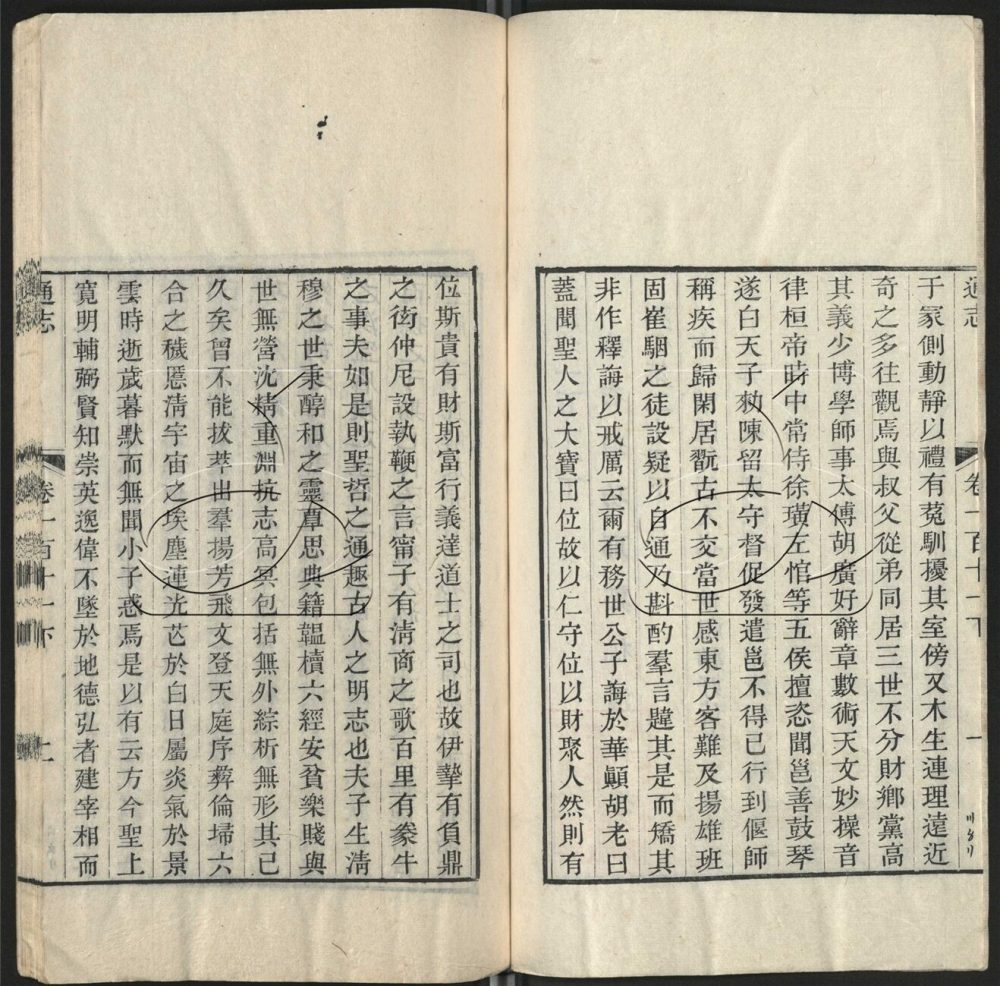 通志
卷一百十一下
于冢側動靜以禮有菟馴擾其室傍又木生連理遠近
奇之多往觀焉與叔父從弟同居三世不分財鄉黨高
其義少博學師事太傅胡廣好辭章數術天文妙操音
律桓帝時中常侍徐璜左悺等五侯擅恣聞邕善鼓琴
遂白天子勑陳留太守督促發遣邕不得已行到偃師
稱疾而歸閑居翫古不交當世感東方客難及揚雄班
固崔駰之徒設疑以自通乃斟酌羣言韙其是而矯其
非作釋誨以戒厲云爾有務世公子誨於華顚胡老曰
蓋聞聖人之大寶曰位故以仁守位以財聚人然則有
位斯貴有財斯富行義達道士之司也故伊摯有負鼎
之衒仲尼設執鞭之言甯子有淸商之歌百里有豢牛
之事夫如是則聖哲之通趣古人之明志也夫子生淸
穆之世秉醇和之靈覃思典籍韞櫝六經安貧樂賤與
世無營沈精重淵抗志高冥包括無外綜析無形其已
久矣曾不能拔萃出羣揚芳飛文登天庭序彜倫埽六
合之穢慝淸宇宙之埃塵連光芒於白日屬炎氣於景
雲時逝歲暮默而無聞小子惑焉是以有云方今聖上
寬明輔弼賢知崇英逸偉不墜於地德弘者建宰相而
通志
卷一百十一下